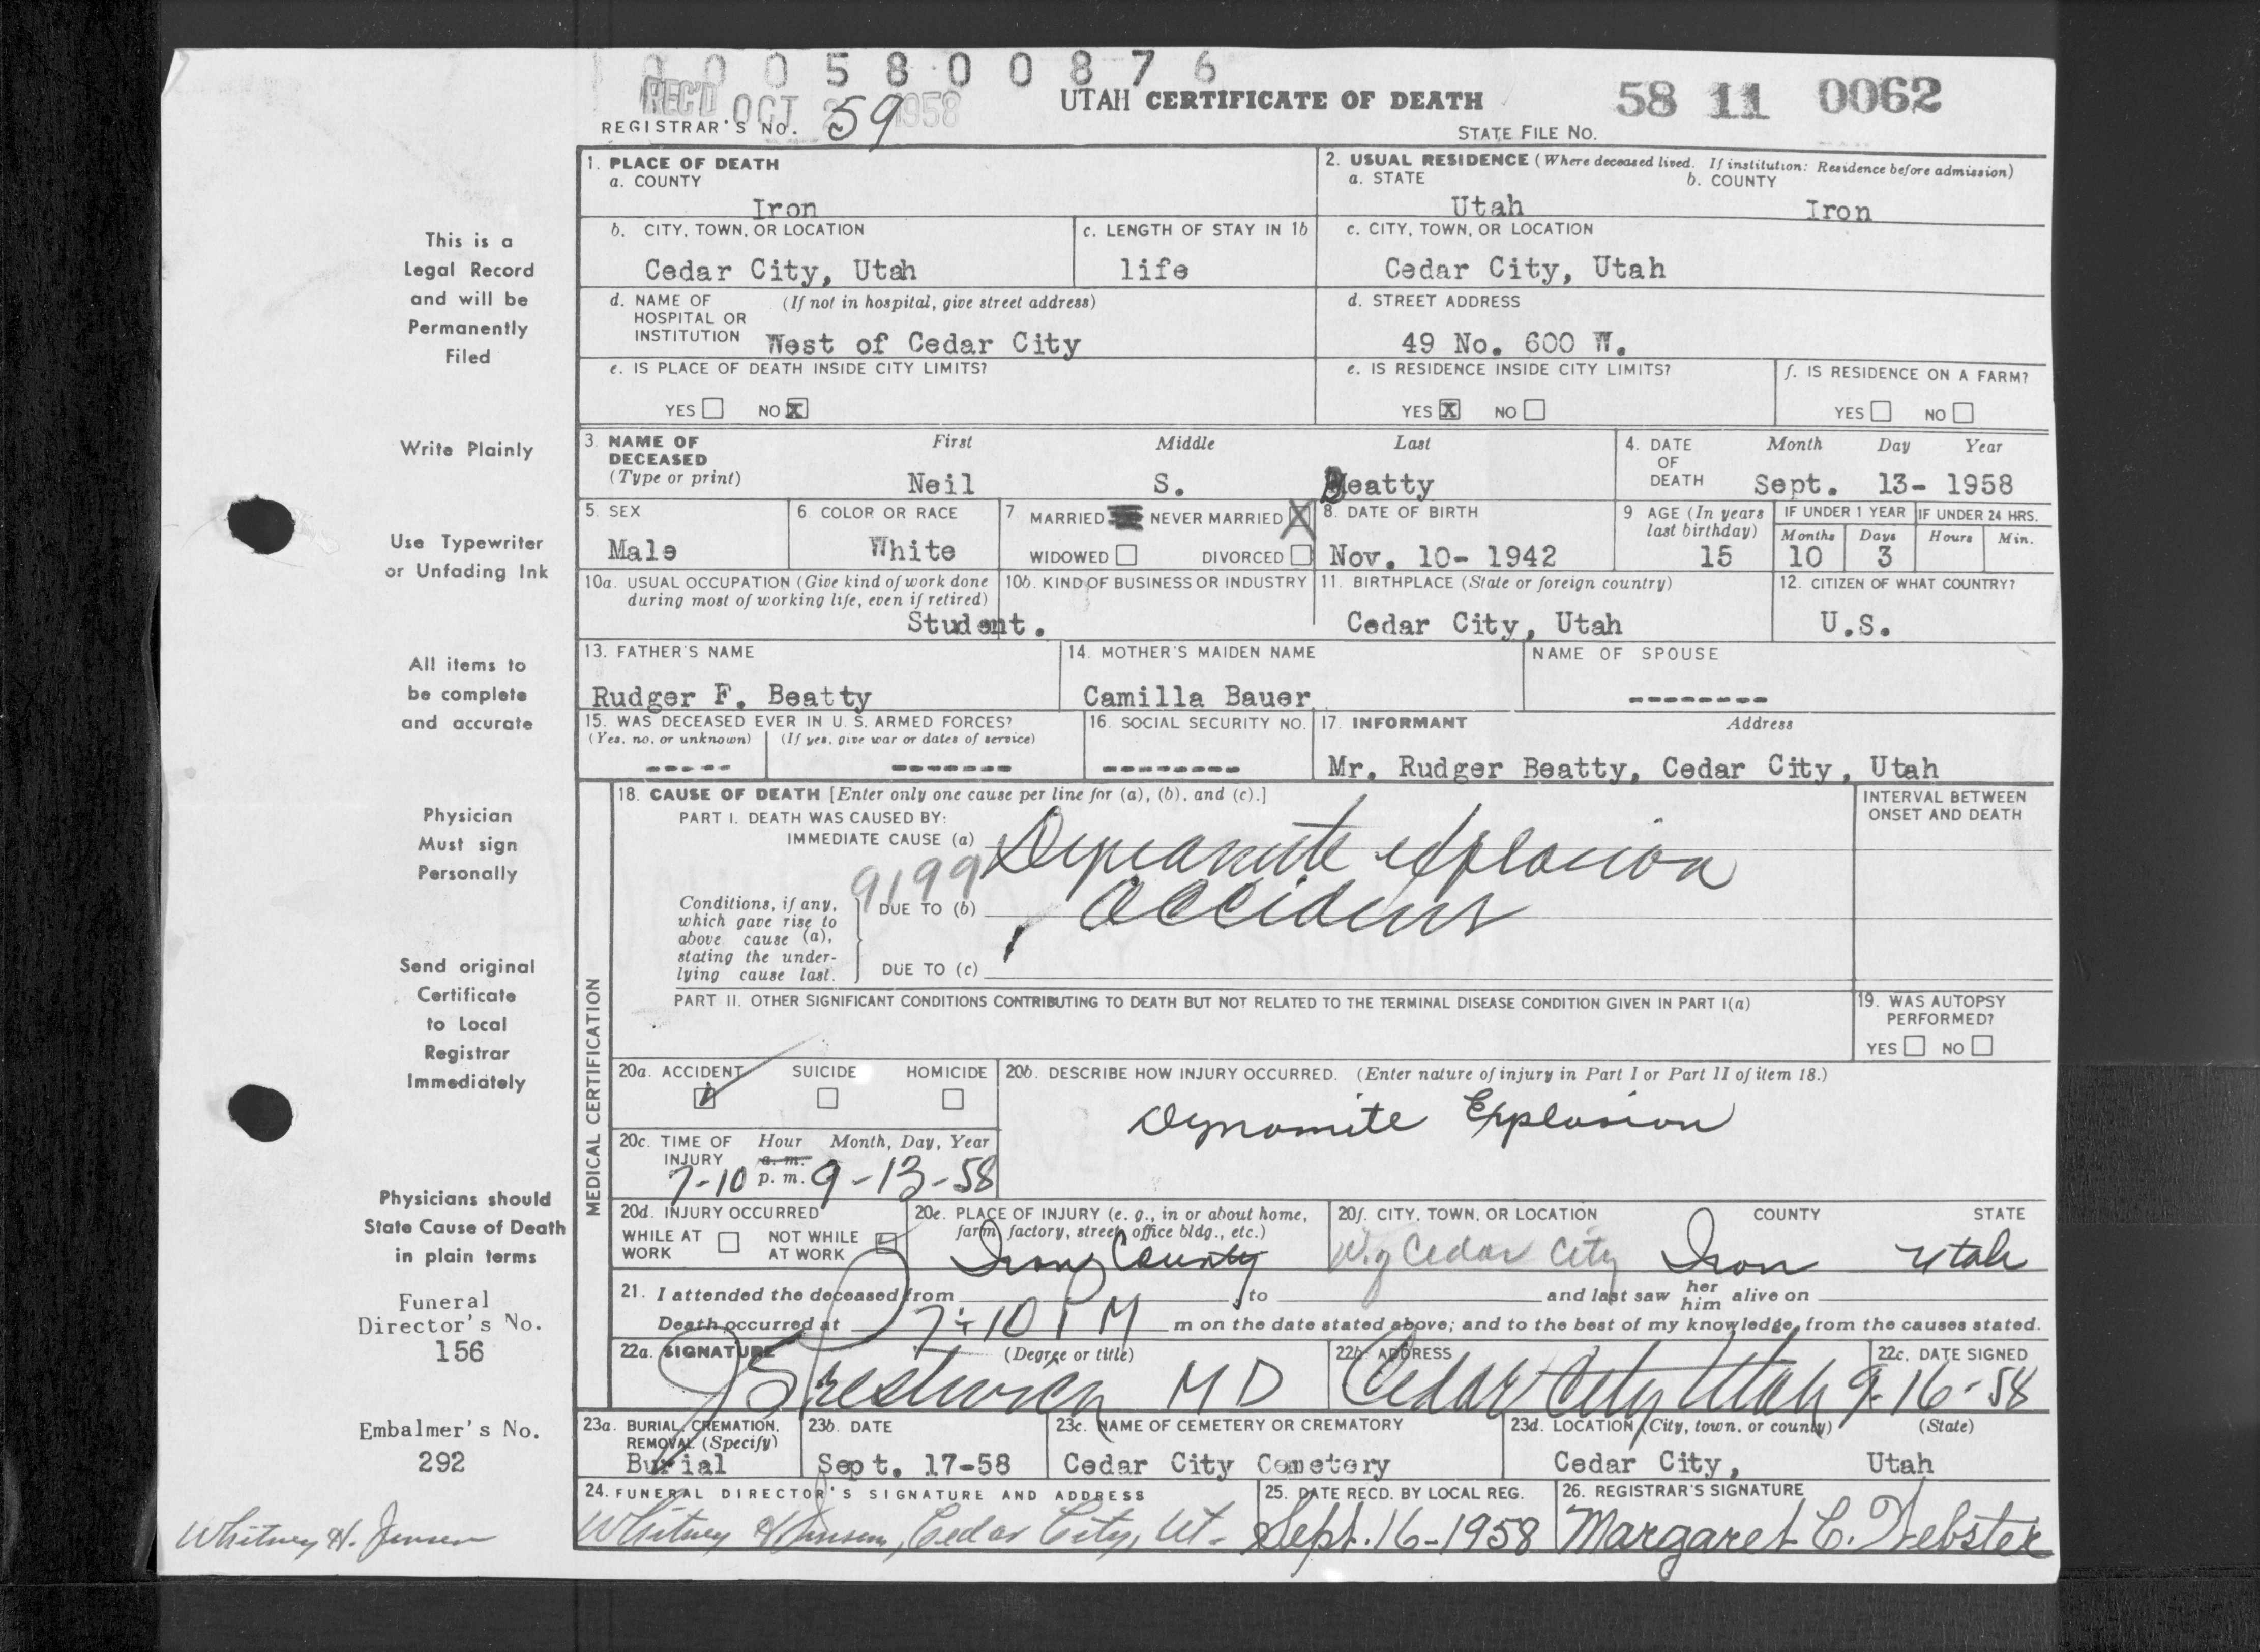 0 0 0 5 8 0 0 8 7 6
REC'D OCT 1958
UTAH CERTIFICATE OF DEATH
58 11 0062
REGISTRAR'S NO. 59
STATE FILE NO.
1. PLACE OF DEATH
a. COUNTY
Iron
2. USUAL RESIDENCE (Where deceased lived. If institution: Residence before admission)
a. STATE b. COUNTY
Utah Iron
b. CITY, TOWN, OR LOCATION
Cedar City, Utah
c. LENGTH OF STAY IN 1b
life
c. CITY, TOWN, OR LOCATION
Cedar City, Utah
d. NAME OF HOSPITAL OR INSTITUTION (If not in hospital, give street address)
West of Cedar City
d. STREET ADDRESS
49 No. 600 W.
e. IS PLACE OF DEATH INSIDE CITY LIMITS?
YES NO X
e. IS RESIDENCE INSIDE CITY LIMITS?
YES X NO
f. IS RESIDENCE ON A FARM?
YES NO
3. NAME OF DECEASED (Type or print)
First Middle Last
Neil S. Beatty
4. DATE OF DEATH
Month Day Year
Sept. 13- 1958
5. SEX
Male
6. COLOR OR RACE
White
7. MARRIED NEVER MARRIED X
WIDOWED DIVORCED
8. DATE OF BIRTH
Nov. 10- 1942
9 AGE (In years last birthday)
15
IF UNDER 1 YEAR
Months Days
10 3
IF UNDER 24 HRS.
Hours Min.
10a. USUAL OCCUPATION (Give kind of work done during most of working life, even if retired)
Student.
10b. KIND OF BUSINESS OR INDUSTRY
11. BIRTHPLACE (State or foreign country)
Cedar City, Utah
12. CITIZEN OF WHAT COUNTRY?
U.S.
13. FATHER'S NAME
Rudger F. Beatty
14. MOTHER'S MAIDEN NAME
Camilla Bauer
NAME OF SPOUSE
--------
15. WAS DECEASED EVER IN U. S. ARMED FORCES?
(Yes, no, or unknown) (If yes, give war or dates of service)
----- -------
16. SOCIAL SECURITY NO.
--------
17. INFORMANT Address
Mr. Rudger Beatty, Cedar City, Utah
MEDICAL CERTIFICATION
18. CAUSE OF DEATH [Enter only one cause per line for (a), (b), and (c).]
PART I. DEATH WAS CAUSED BY:
IMMEDIATE CAUSE (a) Dynamite explosion
9199
Conditions, if any, which gave rise to above cause (a), stating the underlying cause last.
DUE TO (b) accident
DUE TO (c)
INTERVAL BETWEEN ONSET AND DEATH
PART II. OTHER SIGNIFICANT CONDITIONS CONTRIBUTING TO DEATH BUT NOT RELATED TO THE TERMINAL DISEASE CONDITION GIVEN IN PART I(a)
19. WAS AUTOPSY PERFORMED?
YES NO
20a. ACCIDENT SUICIDE HOMICIDE
20b. DESCRIBE HOW INJURY OCCURRED. (Enter nature of injury in Part I or Part II of item 18.)
Dynomite Explosion
20c. TIME OF INJURY Hour Month, Day, Year
a. m.
7-10 p. m. 9-13-58
20d. INJURY OCCURRED
WHILE AT WORK NOT WHILE AT WORK
20e. PLACE OF INJURY (e. g., in or about home, farm, factory, street, office bldg., etc.)
Iron County
20f. CITY, TOWN, OR LOCATION COUNTY STATE
W. of Cedar City Iron Utah
21. I attended the deceased from , to and last saw her him alive on
Death occurred at 7:10 PM m on the date stated above; and to the best of my knowledge, from the causes stated.
22a. SIGNATURE (Degree or title)
Prestwich MD
22b. ADDRESS
Cedar City Utah
22c. DATE SIGNED
9-16-58
23a. BURIAL, CREMATION, REMOVAL (Specify)
Burial
23b. DATE
Sept. 17-58
23c. NAME OF CEMETERY OR CREMATORY
Cedar City Cemetery
23d. LOCATION (City, town, or county) (State)
Cedar City, Utah
24. FUNERAL DIRECTOR'S SIGNATURE AND ADDRESS
Whitney H Jensen, Cedar City, Ut.
25. DATE RECD. BY LOCAL REG.
Sept. 16-1958
26. REGISTRAR'S SIGNATURE
Margaret C. Webster
This is a
Legal Record
and will be
Permanently
Filed
Write Plainly
Use Typewriter
or Unfading Ink
All items to
be complete
and accurate
Physician
Must sign
Personally
Send original
Certificate
to Local
Registrar
Immediately
Physicians should
State Cause of Death
in plain terms
Funeral
Director's No.
156
Embalmer's No.
292
Whitney H. Jensen